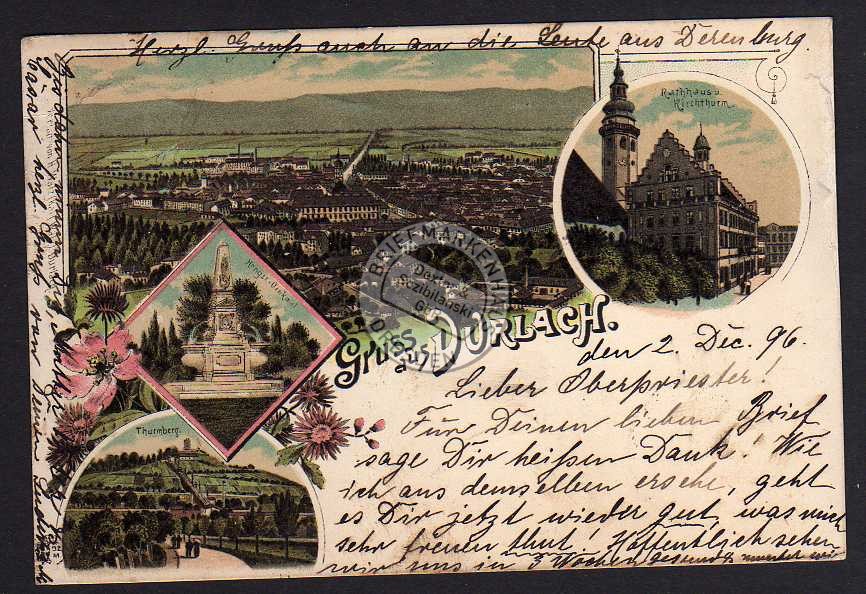 Herzl. Gruß auch an die Leute aus Derenburg.
Rathhaus u.
Kirchthurm.
Krieger-Denkmal
Thurmberg.
Gruss
aus DURLACH.
BRIEFMARKENHAUS
DRESDEN
den 2. Dec. 96.
Lieber Oberpriester!
Für Deinen lieben Brief
sage Dir heißen Dank! Wie
ich aus demselben ersehe, geht
es Dir jetzt wieder gut, was mich
sehr freuen thut! Hoffentlich sehen
wir uns in 3 Wochen gesund & munter wie